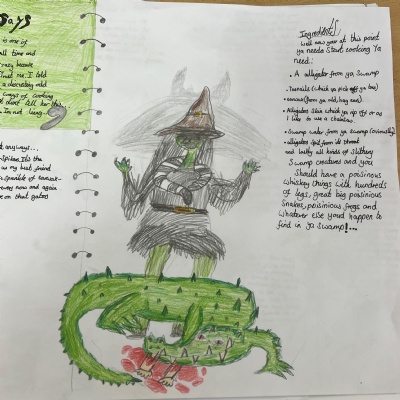 Says
is one of
all time and
crazy because
Trust me. I told
a disgusting odd
ways of cooking
Im not lieing...
anyways...
Its the
as my best friend
a sprinkle of
now and again
on that gates
Ingredients
Well now your at this point
ya needs Start cooking Ya
need:
• A alligator from ya Swamp
• Toenails (which ya pick off ya toe)
(from ya old, hag ears)
• Alligators Skin which ya rip off or as
I like to use a chainsaw.
• Swamp water from ya swamp (obviously)
• alligators Spit from it's throat
and lastly all kinds of Slithery
Swamp creatures and you
Should have a poisinous
whiskey things with hundreds
of legs, great big poisinious
Snakes, poisinious frogs and
whatever else youd happen to
find in ya Swamp!...